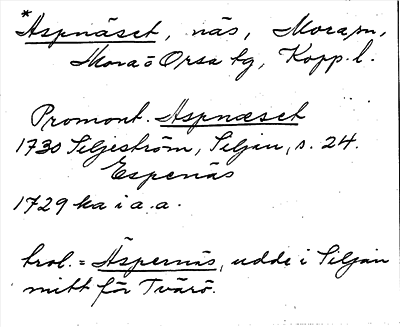 *
Aspnäset, näs, Mora sn,
Mora o Orsa tg, Kopp. l.
Promont. Aspnæset
1730 Siljeström, Siljan, s. 24.
Espenäs
1729 ka i a.a.
trol. = Äspernäs, udde i Siljan
mitt för Tvärö.